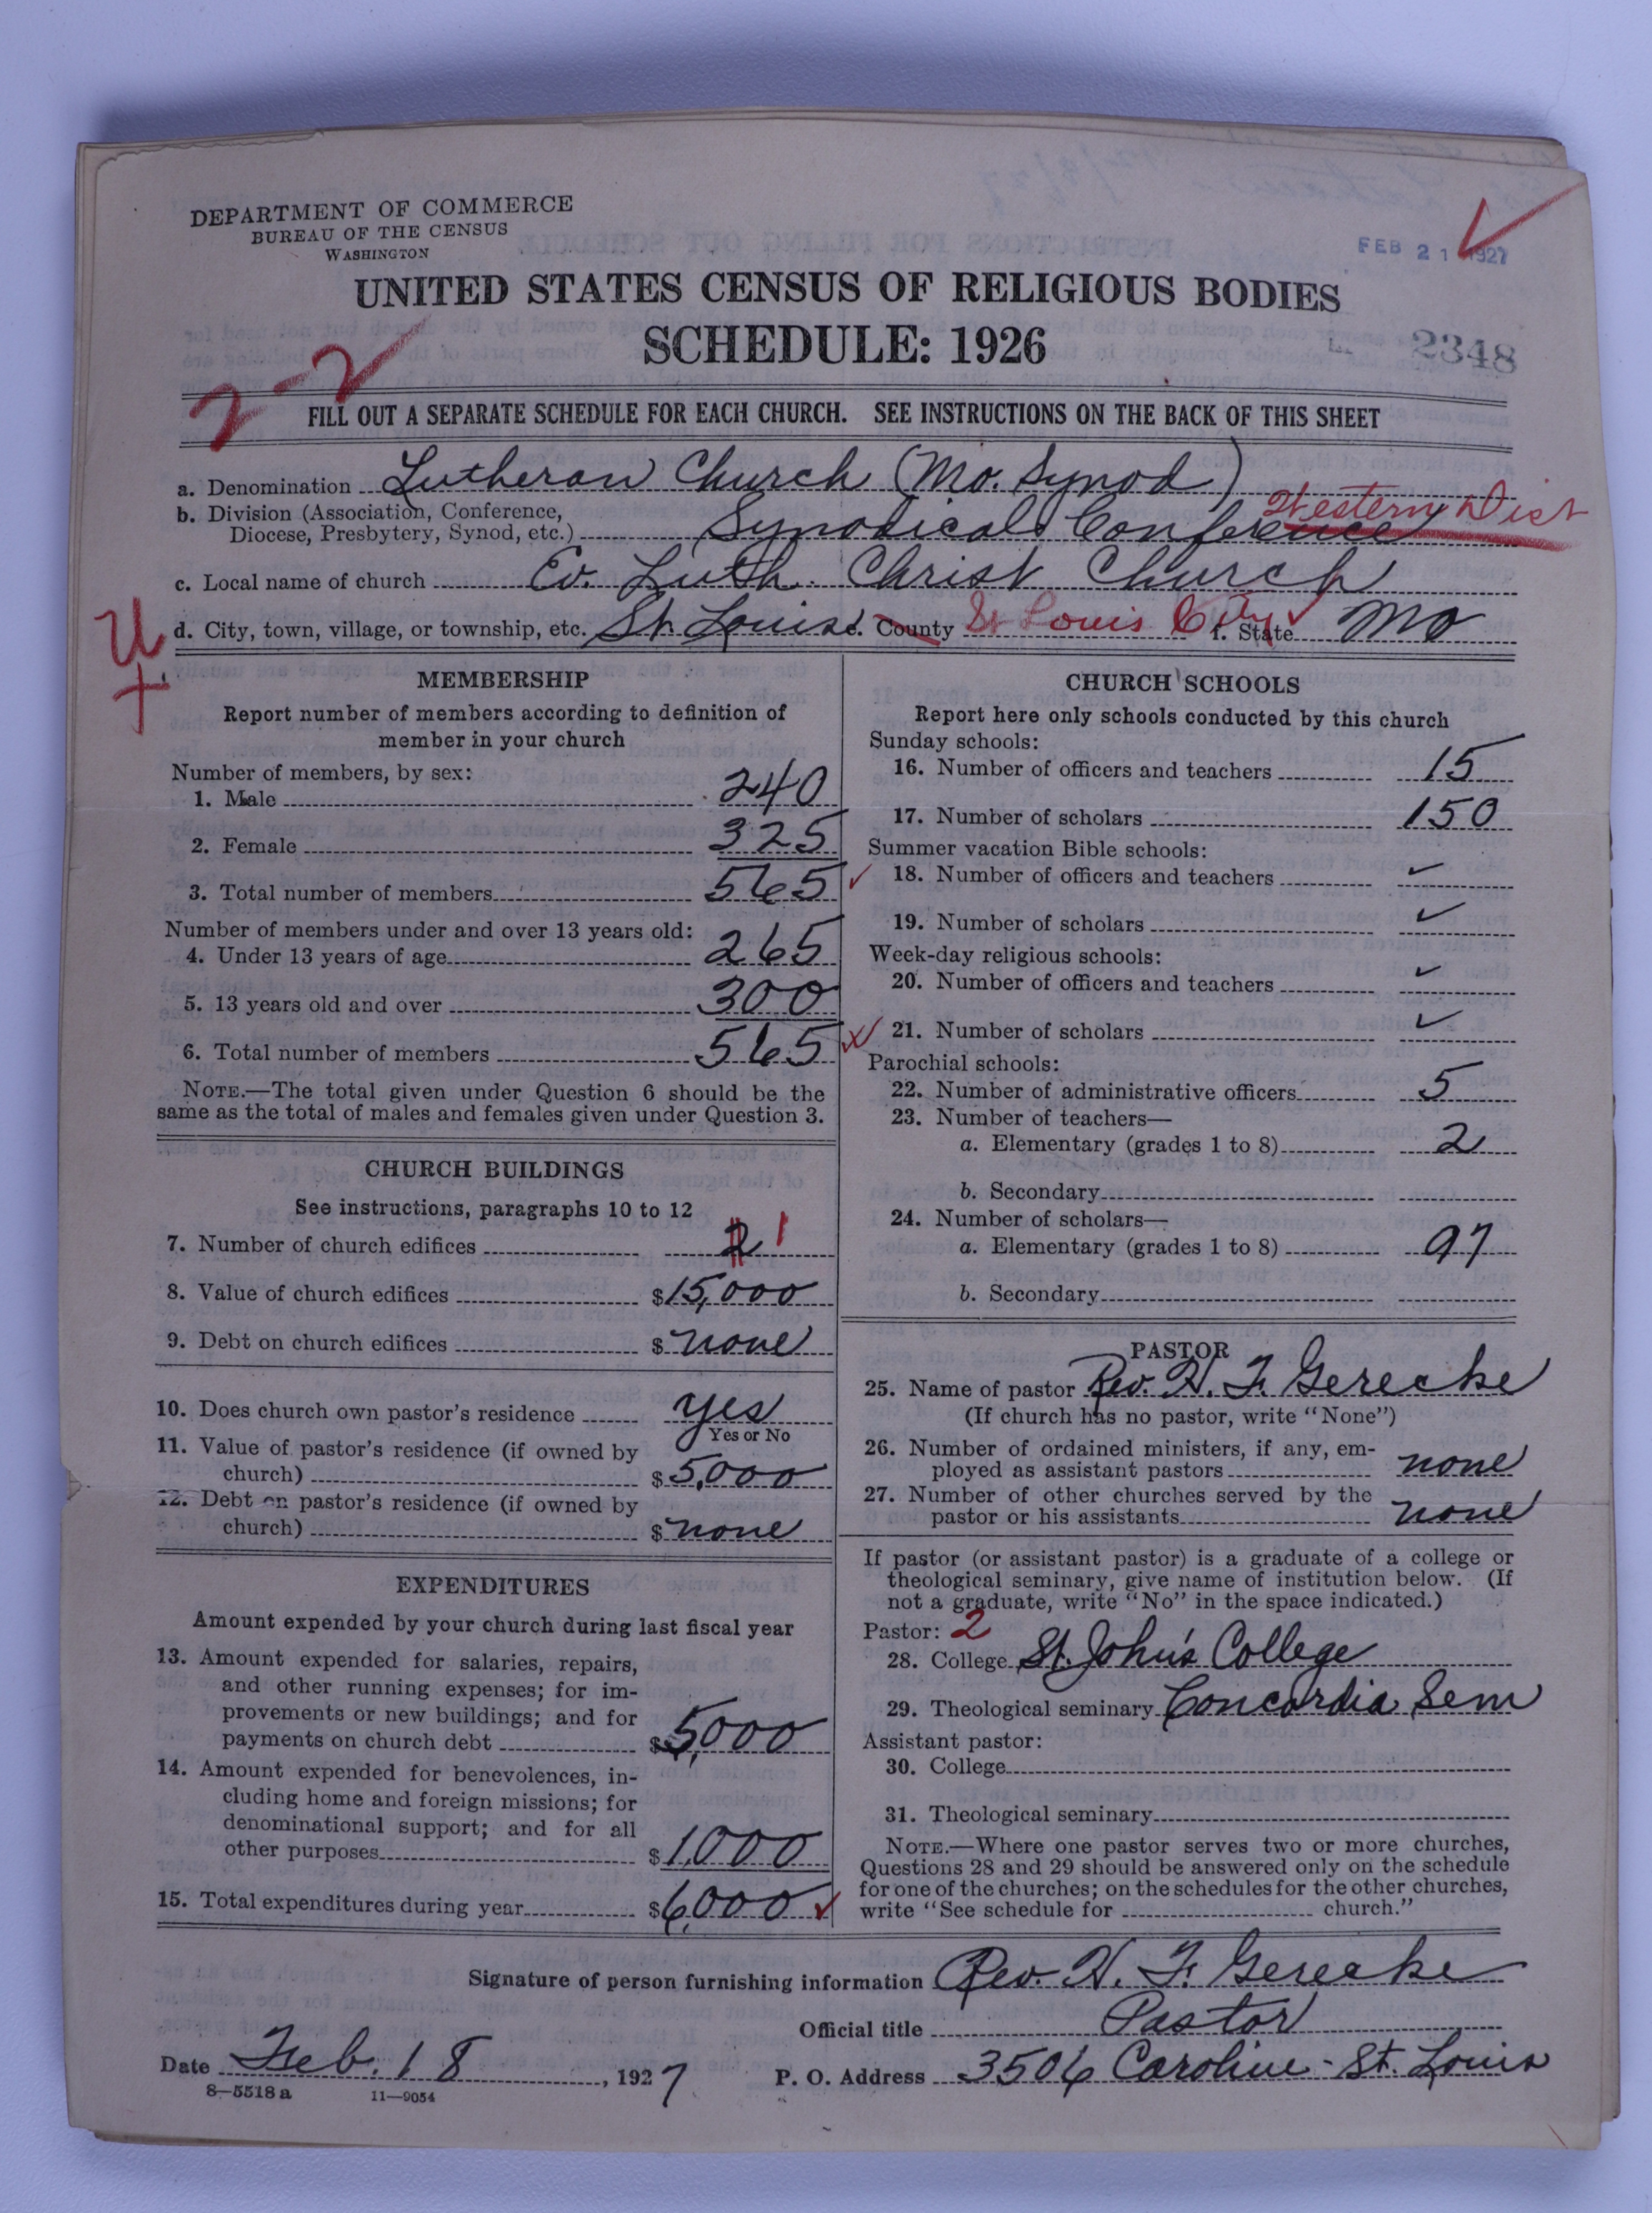 DEPARTMENT OF COMMERCE
BUREAU OF THE CENSUS
WASHINGTON
FEB 21 1927
UNITED STATES CENSUS OF RELIGIOUS BODIES
SCHEDULE: 1926
2348
2-2
FILL OUT A SEPARATE SCHEDULE FOR EACH CHURCH. SEE INSTRUCTIONS ON THE BACK OF THIS SHEET
a. Denomination Lutheran Church (Mo. Synod)
b. Division (Association, Conference,
Diocese, Presbytery, Synod, etc.) Synodical Conference Western Dist
c. Local name of church Ev. Luth. Christ Church
d. City, town, village, or township, etc. St. Louis e. County St Louis City f. State Mo
U
+
MEMBERSHIP
Report number of members according to definition of
member in your church
Number of members, by sex:
1. Male 240
2. Female 325
3. Total number of members 565
Number of members under and over 13 years old:
4. Under 13 years of age 265
5. 13 years old and over 300
6. Total number of members 565
NOTE.—The total given under Question 6 should be the
same as the total of males and females given under Question 3.
CHURCH BUILDINGS
See instructions, paragraphs 10 to 12
7. Number of church edifices 2 1
8. Value of church edifices $15,000
9. Debt on church edifices $none
10. Does church own pastor's residence yes
Yes or No
11. Value of pastor's residence (if owned by
church) $5,000
12. Debt on pastor's residence (if owned by
church) $none
EXPENDITURES
Amount expended by your church during last fiscal year
13. Amount expended for salaries, repairs,
and other running expenses; for im-
provements or new buildings; and for
payments on church debt $5,000
14. Amount expended for benevolences, in-
cluding home and foreign missions; for
denominational support; and for all
other purposes $1,000
15. Total expenditures during year $6,000
CHURCH SCHOOLS
Report here only schools conducted by this church
Sunday schools:
16. Number of officers and teachers 15
17. Number of scholars 150
Summer vacation Bible schools:
18. Number of officers and teachers ✓
19. Number of scholars ✓
Week-day religious schools:
20. Number of officers and teachers ✓
21. Number of scholars ✓
Parochial schools:
22. Number of administrative officers 5
23. Number of teachers—
a. Elementary (grades 1 to 8) 2
b. Secondary
24. Number of scholars—
a. Elementary (grades 1 to 8) 97
b. Secondary
PASTOR
25. Name of pastor Rev. H. F. Gerecke
(If church has no pastor, write "None")
26. Number of ordained ministers, if any, em-
ployed as assistant pastors none
27. Number of other churches served by the
pastor or his assistants none
If pastor (or assistant pastor) is a graduate of a college or
theological seminary, give name of institution below. (If
not a graduate, write "No" in the space indicated.)
Pastor: 2
28. College St. John's College
29. Theological seminary Concordia Sem
Assistant pastor:
30. College
31. Theological seminary
NOTE.—Where one pastor serves two or more churches,
Questions 28 and 29 should be answered only on the schedule
for one of the churches; on the schedules for the other churches,
write "See schedule for church."
Signature of person furnishing information Rev. H. F. Gerecke
Official title Pastor
Date Feb. 18, 1927 P. O. Address 3506 Caroline - St. Louis
8—5518a 11—9054